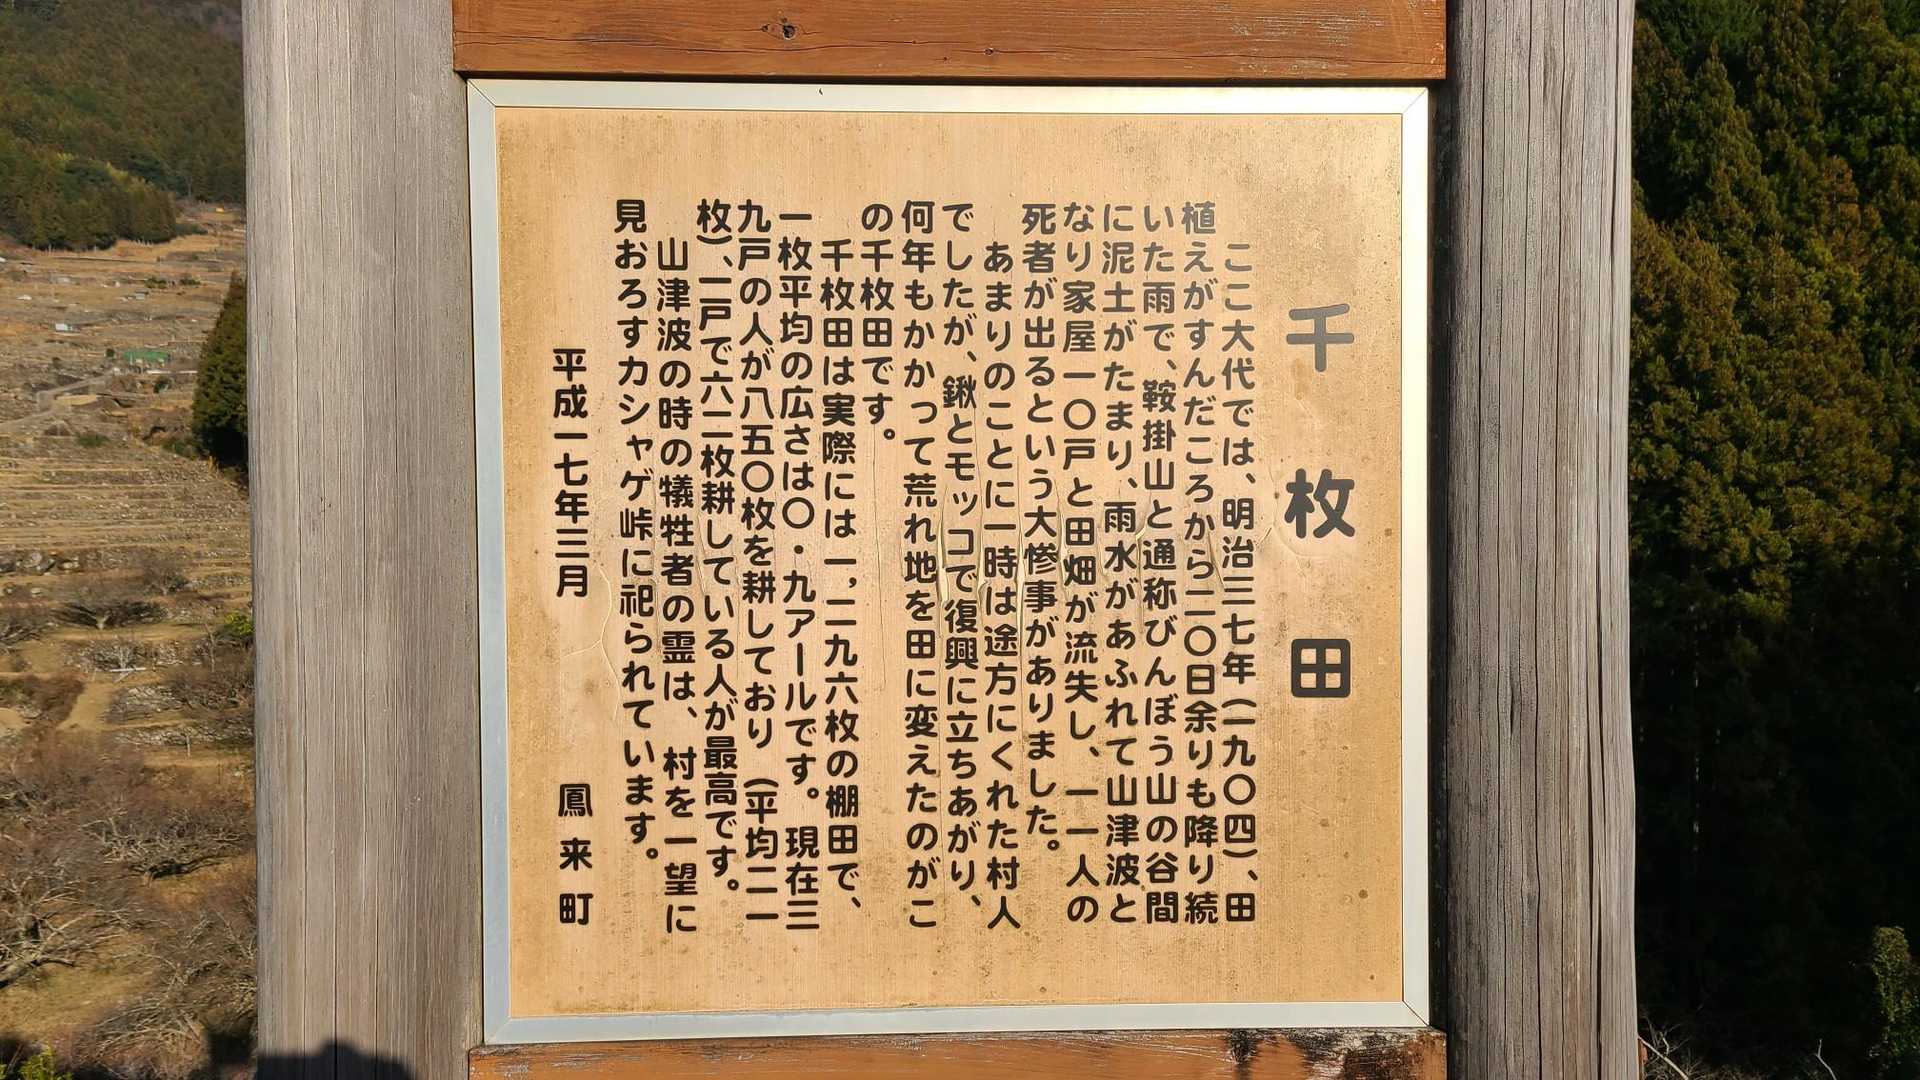 千枚田
ここ大代では、明治三七年(一九〇四)、田
植えがすんだころから二〇日余りも降り続
いた雨で、鞍掛山と通称びんぼう山の谷間
に泥土がたまり、雨水があふれて山津波と
なり家屋一〇戸と田畑が流失し、一一人の
死者が出るという大惨事がありました。
あまりのことに一時は途方にくれた村人
でしたが、鍬とモッコで復興に立ちあがり、
何年もかかって荒れ地を田に変えたのがこ
の千枚田です。
千枚田は実際には一,二九六枚の棚田で、
一枚平均の広さは〇・九アールです。現在三
九戸の人が八五〇枚を耕しており(平均二一
枚)、一戸で六二枚耕している人が最高です。
山津波の時の犠牲者の霊は、村を一望に
見おろすカシャゲ峠に祀られています。
平成一七年三月 鳳来町